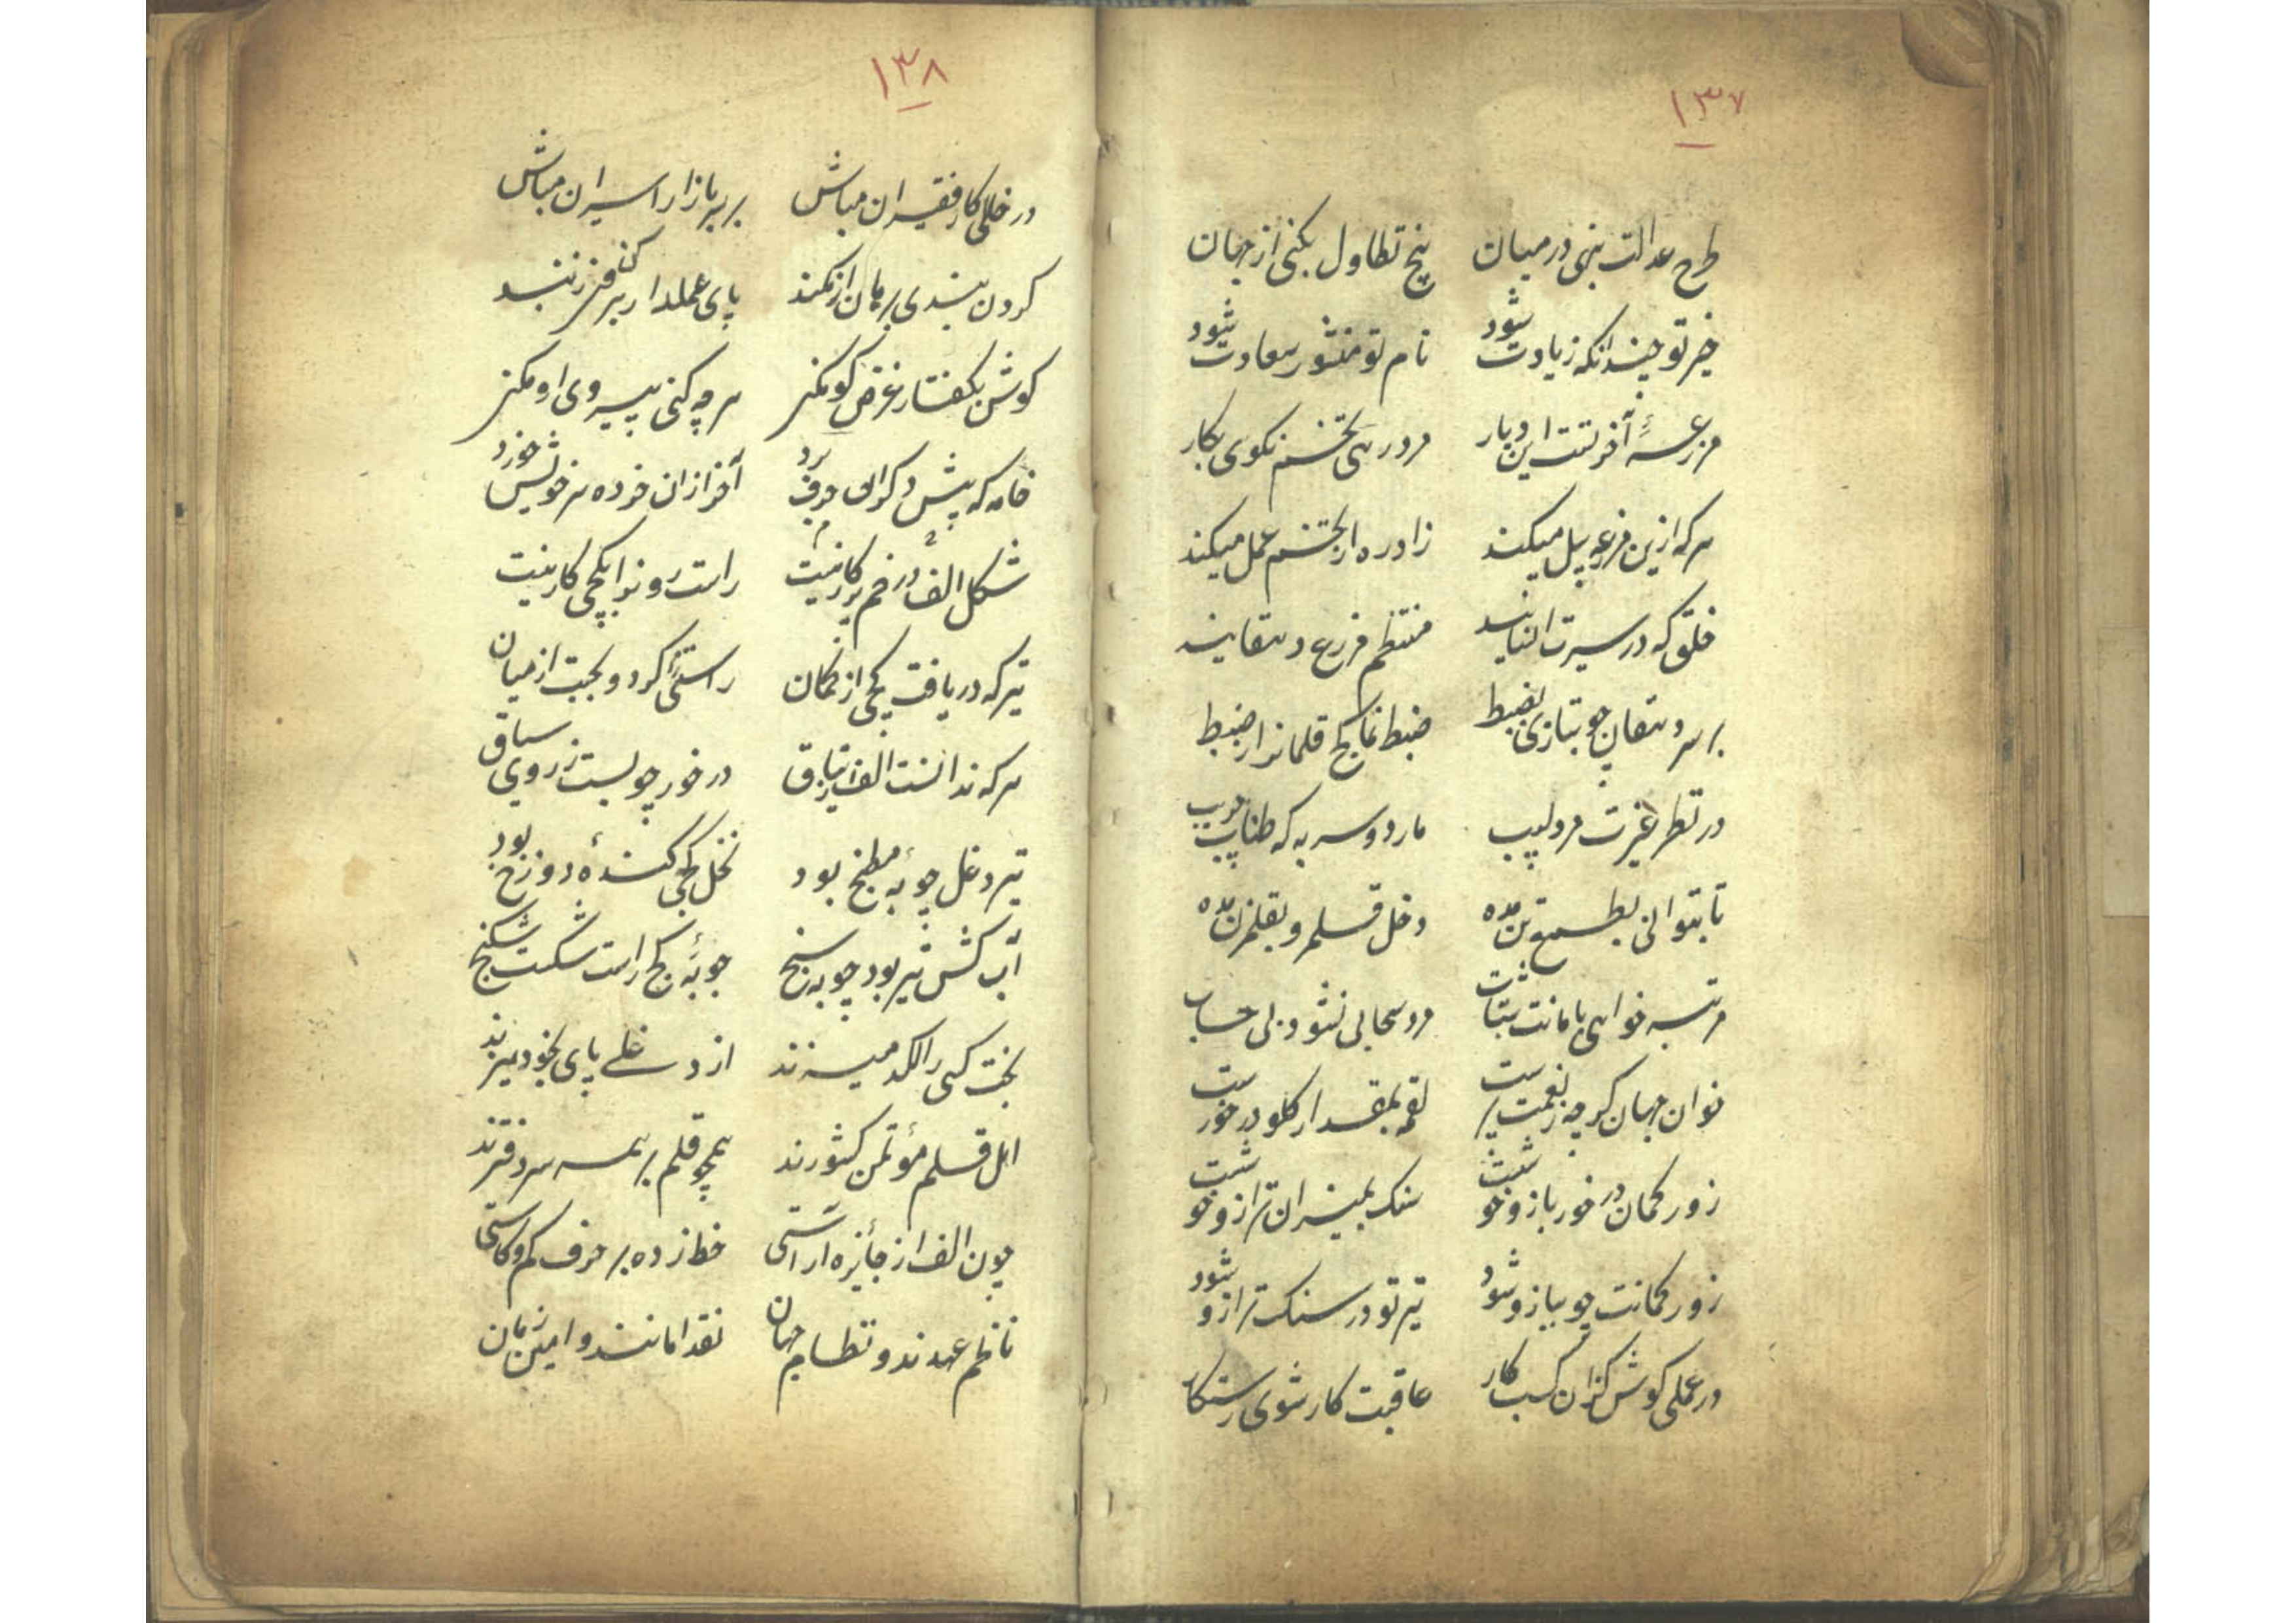 ۱۳۷
طرح عدالت بنهی در میان بیخ تطاول بکنی از جهان
خیر تو چندانکه زیادت شود نام تو منشور سعادت شود
مزرعهٔ آخرتست این دیار مرد رهی تخم نکوی بکار
هر که ازین مزرعه پل میکند زاد ره از تخم عمل میکند
خلق که در سیرت انسانند منتظم مزرع دهقانند
بر سر دهقان چو بتازی بضبط ضبط نما کج قلمانرا ز ضبط
در نظر غیرت مرد لبیب مار دو سر به که طناب جریب
تا بتوانی بطمع تن مده دخل قلم و بقلمزن مده
مرتبه خواهی بامانت شتاب مرد سحابی نشود بی حساب
خوان جهان گرچه ز نعمت پرست لقمه بمقدار کلو در خورست
زور کمان در خور بازو خوشست سنک بمیزان ترازو خوشست
زور کمانت چو ببازو شود تیر تو در سنک ترازو شود
در عملی کوش کزان کسب کار عاقبت کار شوی رستکار
۱۳۸
در خلل کار فقیران مباش بر سر بازار اسیران مباش
کردن بندی برهان از کمند پای عملدار بر کنند
کوش بکفتار غرض کو مکن هر چه کنی پیروی او مکن
خامه که پیش دکران حرف برد آخر از ان خرده سر خویش خورد
شکل الف در خم پرکار نیست راست رو ندا بکجی کار نیست
تیر که دریافت کجی از کمان راستئی کرد و بجست از میان
هر که ندانست الف از نیاق در خور چوبست ز روی سیاق
تیر دغل چوبهٔ مطبخ بود نخل کجی کندهٔ دوزخ بود
آب کش تیر بود چوبه سنج چوبهٔ کج راست شکست شکنج
بخت کسی را لکد میزند از دغلی پای بخود میزند
اهل قلم مؤتمن کشورند همچو قلم بر همه سر دفترند
چون الف از جائزه آراستی خط زده بر حرف کم و کاستی
ناظم عهدند و نظام جهان نقد امانند و امین زمان